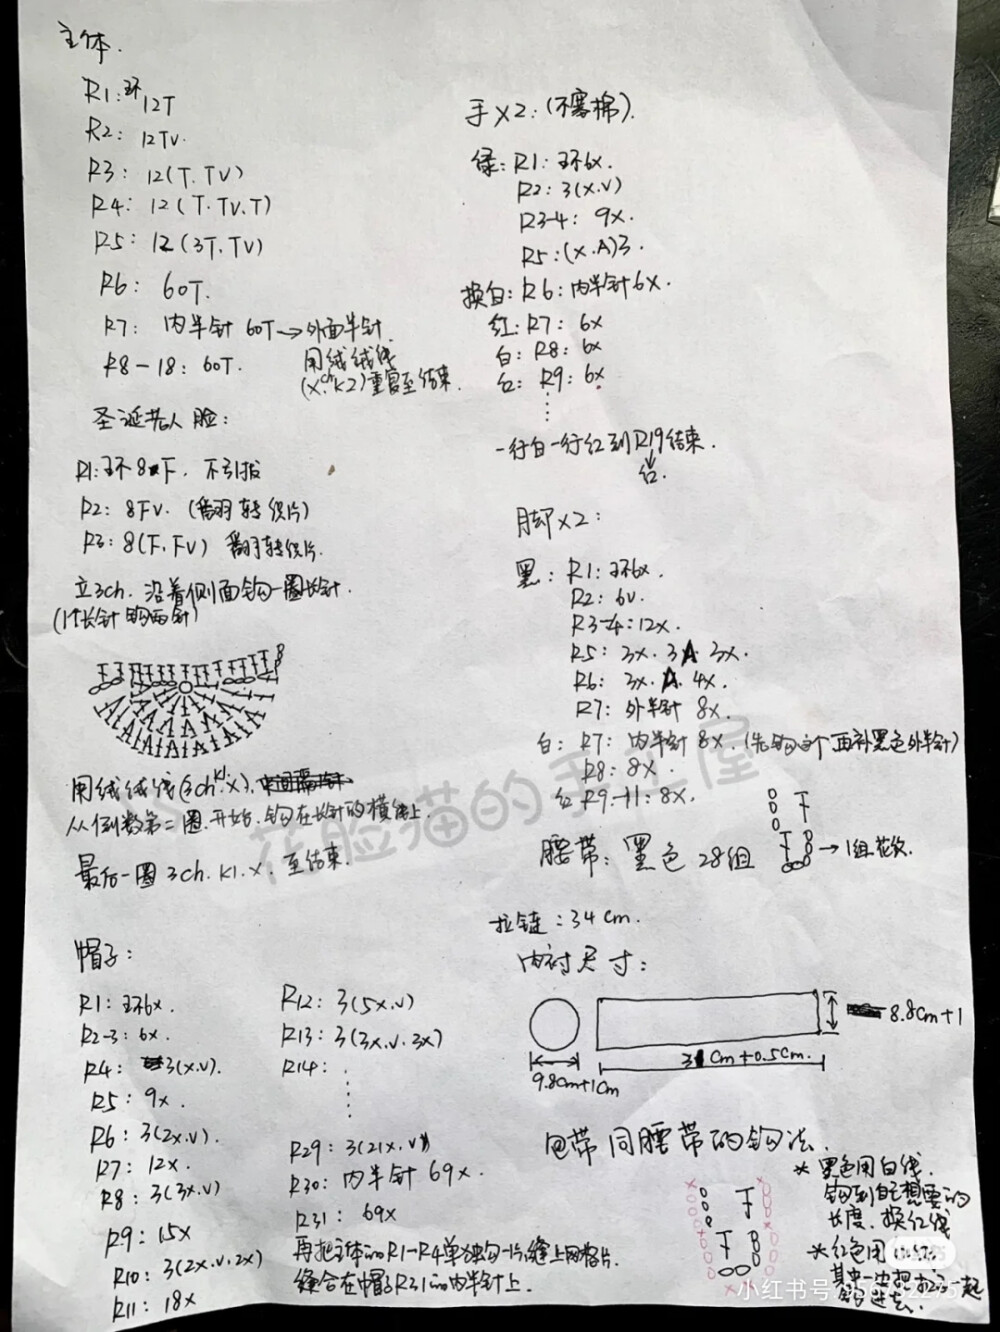 主体.
R1:环12T
R2: 12TV.
R3: 12(T.TV)
R4: 12(T.TV.T)
R5: 12(3T.TV)
R6: 60T.
R7: 内半针 60T→外面半针
用绒绒线
(x.ch.k2)重复至结束.
R8-18: 60T.
圣诞老人脸:
R1:环8F. 不引拔
R2: 8FV. (翻转织片)
R3: 8(F.FV) 翻转织片.
立3ch. 沿着侧面钩一圈长针.
(1个长针钩两针)
用绒绒线(3ch.k1.x).
从倒数第二圈.开始.钩在长针的横线上.
最后一圈 3ch.k1.x.至结束.
帽子:
R1:环6x.
R2-3: 6x.
R4: 3(x.v).
R5: 9x.
R6: 3(2x.v).
R7: 12x.
R8: 3(3x.v)
R9: 15x
R10: 3(2x.v.2x)
R11: 18x
R12: 3(5x.v)
R13: 3(3x.v.3x)
R14:
R29: 3(21x.v)
R30: 内半针 69x.
R31: 69x
再把主体的R1-R4单独钩一片缝上网格片.
缝合在帽子R31的内半针上.
手x2:(不塞棉).
绿: R1: 环6x.
R2: 3(x.v)
R3-4: 9x.
R5:(x.A)3.
换白: R6: 内半针6x.
红: R7: 6x
白: R8: 6x
红: R9: 6x
一行白一行红到R19结束.
脚x2:
黑: R1: 环6x.
R2: 6v.
R3-4: 12x.
R5: 3x.3A.3x.
R6: 3x.A.4x.
R7: 外半针 8x.
白: R7: 内半针 8x.(先钩这个再补黑色外半针)
R8: 8x
红 R9-11: 8x.
腰带: 黑色 28组
→1组花纹.
拉链: 34cm.
内衬尺寸:
8.8cm+1
31cm+0.5cm.
9.8cm+1cm
包带 同腰带的钩法.
*黑色用白线.
钩到自己想要的
长度.换红线
*红色用
其中一边把
花脸猫的手工屋
小红书号